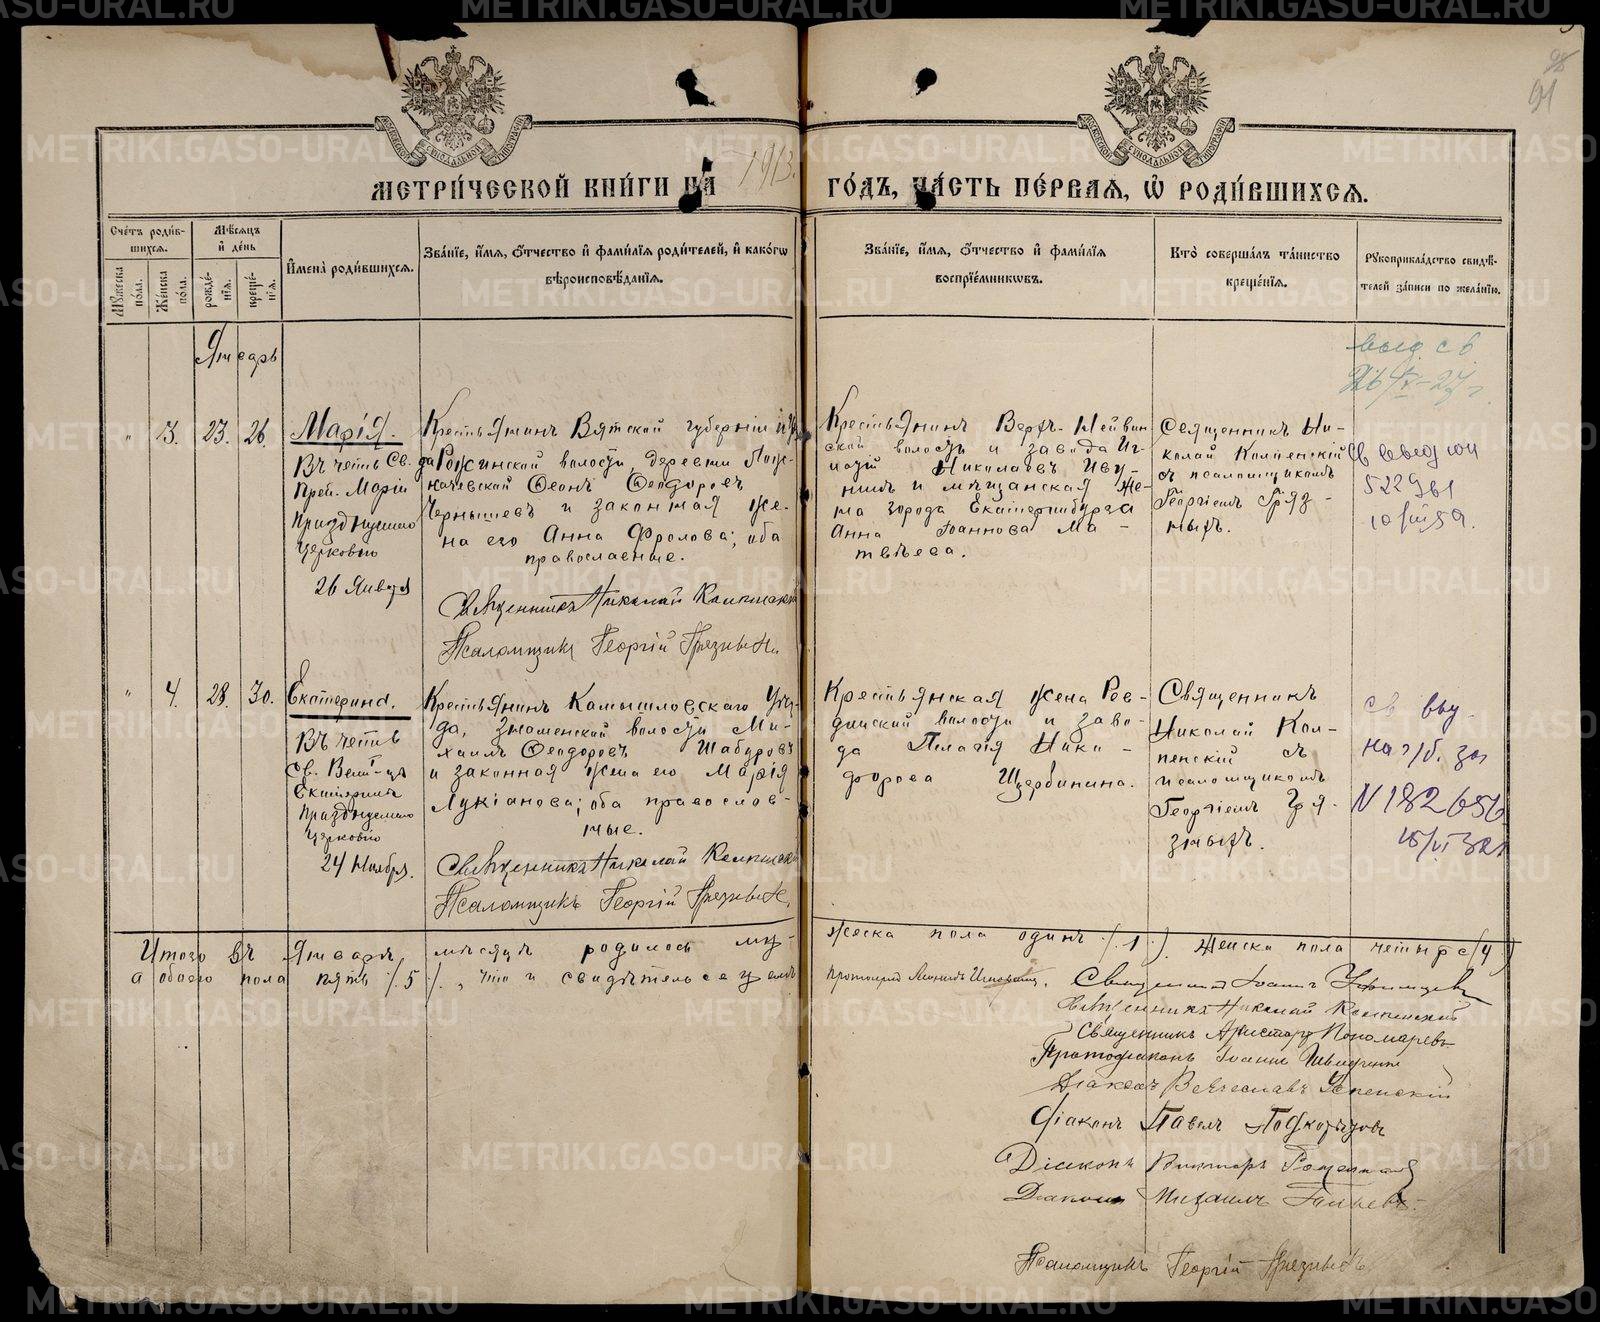 91
МЕТРИ́ЧЕСКОЙ КНИ́ГИ НА 1913.
ГО́ДЪ, ЧА́СТЬ ПЕ́РВАЯ, Ѿ РОДИ́ВШИХСЯ.
Сче́тъ роди́в-
шихся.
Му́жеска по́ла.
Же́нска по́ла.
Мѣ́сяцъ и де́нь
рожде́-
нія.
креще́-
нія.
И́мена роди́вшихся.
Зва́ніе, и́мя, о́тчество и фами́лія роди́телей, и како́гѡ
вѣроисповѣ́данія.
Зва́ніе, и́мя, о́тчество и фами́лія
воспріе́мникѡвъ.
Кто̀ соверша́лъ та́инство
креще́нія.
Рукоприкла́дство свидѣ́-
телей за́писи по жела́нію.
Январь
выд. св.
" 3. 23. 26.
Марія.
Въ честь Св.
Преп. Маріи
Празднуемаго
Церковью
26 Января
Крестьянинъ Вятской губерніи и уѣз
да Рожинской волости деревни
Ѳеонъ Ѳеодоровъ
Чернышевъ и законная же-
на его Анна Фролова; оба
православные.
Священникъ Николай Колпенскій
Псаломщикъ Георгій Грязныхъ.
Крестьянинъ Верх-Нейвин
ской волости и завода Иг-
натій Николаевъ Иву-
нинъ и мѣщанская же-
на города Екатеринбурга
Анна Іоаннова Ма-
твѣева.
Священникъ Ни-
колай Колпенскій
съ псаломщикомъ
Георгіемъ Гряз-
ныхъ.
" 4. 28. 30.
Екатерина.
Въ честь
Св. Вел-цы
Екатерины
Празднуемаго
Церковію
24 Ноября.
Крестьянинъ Камышловскаго Уѣз-
да, Знаменской волости Ми-
хаилъ Ѳеодоровъ Шабуровъ
и законная жена его Марія
Лукіанова; оба православ-
ные.
Священникъ Николай Колпенскій
Псаломщикъ Георгій Грязныхъ.
Крестьянская жена Рев-
динской волости и заво-
да Пелагія Ники-
форова Щербинина.
Священникъ
Николай Кол-
пенскій съ
псаломщикомъ
Георгіемъ Гря-
зныхъ.
св выд.
N 182656
Итого въ Январѣ мѣсяцѣ родилось му-
жеска пола одинъ (1). Женска пола четыре (4)
а обоего пола пять (5). что и свидѣтельствуемъ
Священникъ Іоаннъ
Священникъ Николай Колпенскій
Священникъ Аристархъ Пономаревъ
Протодіаконъ Іоаннъ
Діаконъ Вячеславъ Успенскій
Діаконъ Павелъ Подкорытовъ
Діаконъ Викторъ
Діаконъ Михаилъ
Псаломщикъ Георгій Грязныхъ
METRIKI.GASO-URAL.RU